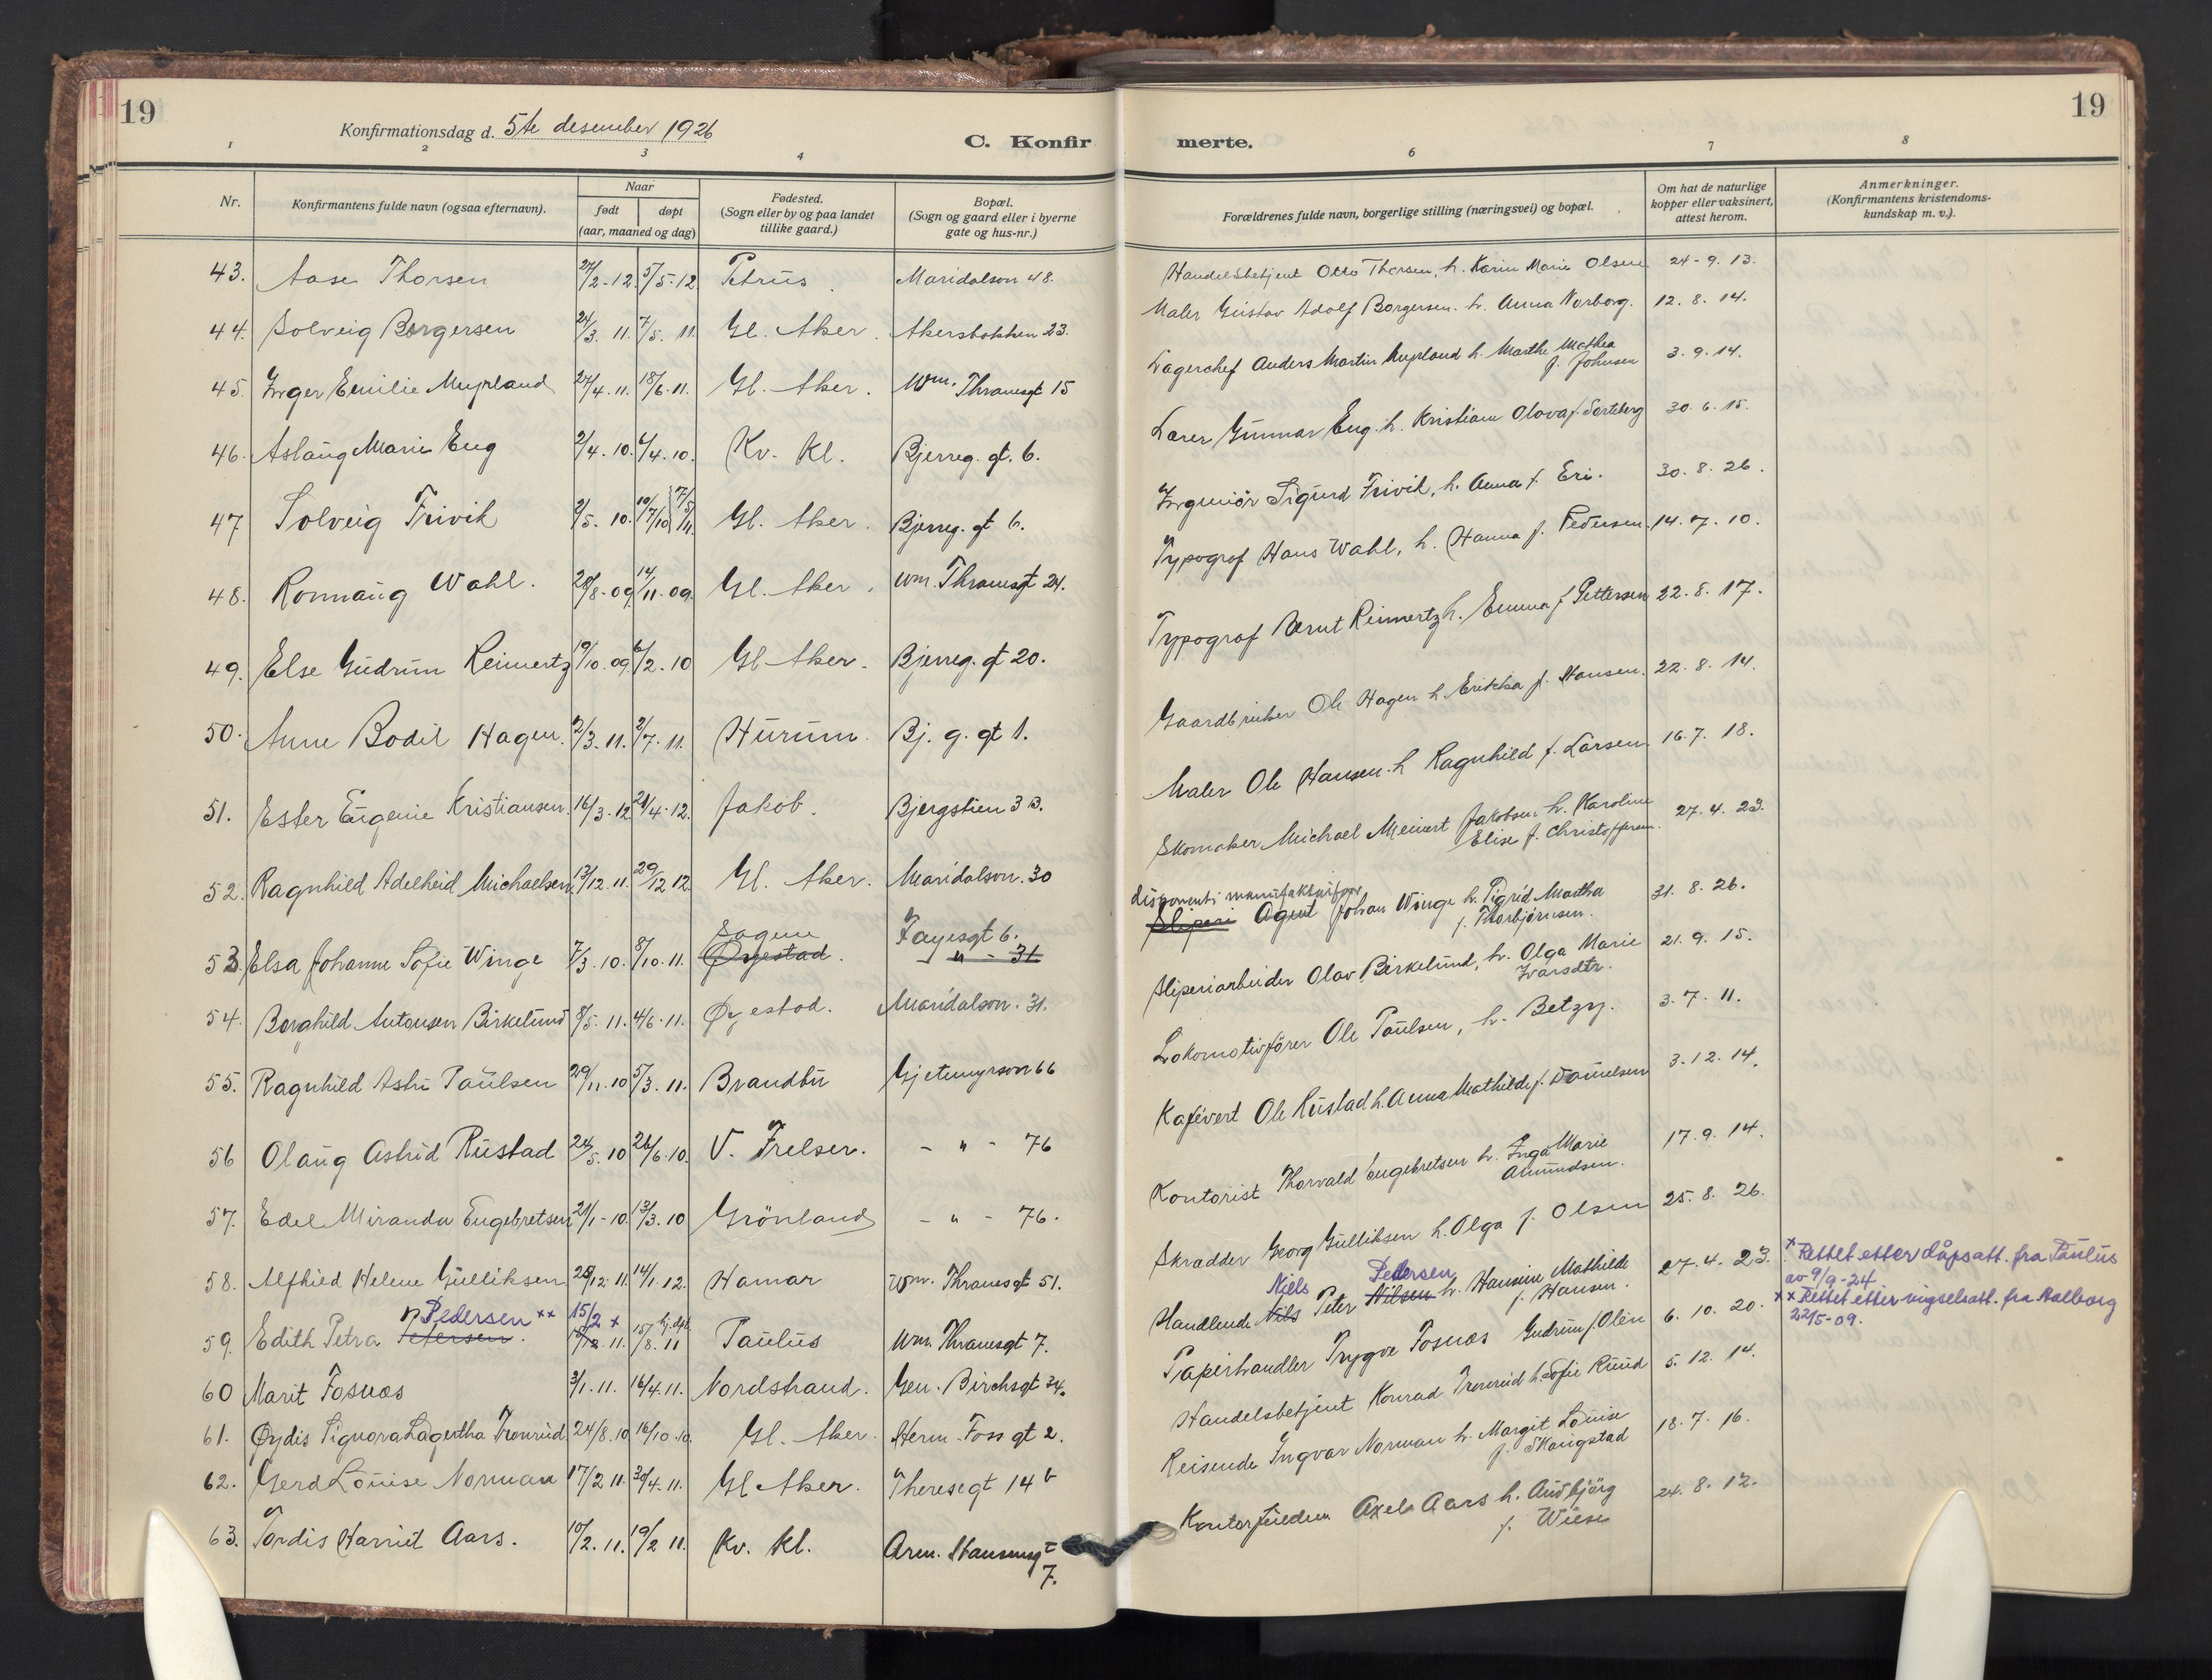 19
Konfirmationsdag d. 5te desember 1926
C. Konfir
merte.
19
1 2 3 4 6 7 8
Nr.
Konfirmantens fulde navn (ogsaa efternavn).
Naar
født
døpt
(aar, maaned og dag)
Fødested.
(Sogn eller by og paa landet
tillike gaard.)
Bopæl.
(Sogn og gaard eller i byerne
gate og hus-nr.)
Forældrenes fulde navn, borgerlige stilling (næringsvei) og bopæl.
Om hat de naturlige
kopper eller vaksinert,
attest herom.
Anmerkninger.
(Konfirmantens kristendoms-
kundskap m. v.).
43. Aase Thorsen 27/2-12. 5/5-12 Petrus. Maridalsvn 48. Handelsbetjent Otto Thorsen, h. Karin Marie Olsen 24-9. 13.
44. Solveig Borgersen 24/3. 11. 7/5. 11. Gl. Aker. Akersbakken 23. Maler Gustav Adolf Borgersen. h. Anna Norborg. 12. 8. 14.
45. Inger Emilie Myrland 27/4. 11. 18/6. 11. Gl. Aker. Wm. Thranesgt 15 Lagerchef Anders Martin Myrland h. Marthe Mathea
f. Johnsen 3. 9. 14.
46. Aslaug Marie Eng 2/4. 10. 4. 10. Kv. Kl. Bjerreg. gt. 6. Lærer Gunnar Eng. h. Kristiane Olova f. Sørteberg 30. 6. 15.
47 Solveig Frivik 2/5. 10. 10/7/10 7/5/11. Gl. Aker. Bjerreg. gt 6. Ingeniör Sigurd Frivik, h. Anna f. Eri. 30. 8. 26.
48. Rønnaug Wahl. 28/8-09. 14/11-09. Gl. Aker. Wm. Thranesgt 24. Typograf Hans Wahl, h. Hanna f. Pedersen. 14. 7. 10.
49. Else Gudrun Reimertz 19/10. 09. 6/2. 10 Gl Aker. Bjerreg. gt 20. Typograf Bernt Reimertz h. Emma f. Pettersen 22. 8. 17.
50. Anne Bodil Hagen. 2/3. 11. 2/7. 11. Hurum. Bj. g. gt 1. Gaardbruker Ole Hagen h. Erikka f. Hansen. 22. 8. 14.
51. Ester Eugenie Kristiansen. 16/3-12 21/4-12. Jakob. Bjergstien 3 B. Maler Ole Hansen. h Ragnhild f. Larsen 16. 7. 18.
52. Ragnhild Adelheid Michaelsen 13/12. 11. 29/12 12. Gl. Aker. Maridalsvn. 30 Skomaker Michael Meinert Jakobsen h. Karoline
Elise f. Christoffersen. 27. 4. 23.
disponent i manufakturforr
53. Elsa Johanne Sofie Winge 7/3. 10. 8/10. 11. Sagene
Øyestad. Fayesgt 6.
" - 31 Sliperi Agent Johan Winge h. Sigrid Martha
f. Thorbjørnsen. 31. 8. 26.
54. Borghild Antonsen Birkelund 8/5. 11. 4/6-11. Øyestad. Maridalsvn. 31. Sliperiarbeider Olav Birkelund, h. Olga Marie
Ivarsdtr. 21. 9. 15.
55. Ragnhild Astri Paulsen 29/11. 10 5/3. 11. Brandbu Gjetemyrsvn 66 Lokomotivfører Ole Paulsen, h. Betzy. 3. 7. 11.
56 Olaug Astrid Rustad 24/5. 10 26/6. 10. V. Frelser. - " - 76 Kafévert Ole Rustad h. Anna Mathilde f. Danielsen 3. 12. 14.
57. Edel Miranda Engebretsen 21/1-10. 13/3. 10 Grönland - " - 76. Kontorist Thorvald Engebretsen h. Inga Marie
Amundsen. 17. 9. 14.
58. Alfhild Helene Gulliksen 28/12. 11. 14/1. 12. Hamar Wm. Thranesgt 51. Skrædder Georg Gulliksen h. Olga f. Olsen 25. 8. 26.
Pedersen ×× 15/2 × Niels Pedersen
59. Edith Petra Petersen. 12. 11. 15/8. 11 hj. dpt. Paulus Wm. Thranesgt 7. Handlende Nils Peter Nilsen h. Hansine Mathilde
f. Hansen. 27. 4. 23. × Rettet etter dåpsatt. fra Paulus
av 9/9-24
×× Rettet etter vigselsatt. fra Aalborg
22/5-09.
60 Marit Fosnæs 3/1. 11. 16/4. 11. Nordstrand. Gen. Birchsgt 34. Papirhandler Trygve Fosnæs Gudrun f. Olen 6. 10. 20.
61. Øydis Signora Lagertha Tronrud 24/8. 10 16/10. 10. Gl. Aker. Herm. Foss gt 2. Handelsbetjent Konrad Tronrud h. Sofie Ruud 5. 12. 14.
62. Gerd Louise Norman 17/2 11. 30/4. 11. Gl Aker. Theresegt 14 b Reisende Ingvar Norman h. Margit Louise
f. Skaugstad 18. 7. 16.
63. Tordis Harriet Aars. 10/2. 11. 19/2 11. Kv. Kl. Arm. Hansensgt
7. Kontorfuldm Axel Aars h. Audbjörg
f. Wiese 24. 8. 12.